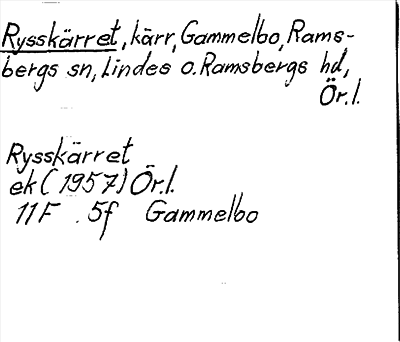 Rysskärret, kärr, Gammelbo, Rams-
bergs sn, Lindes o. Ramsbergs hd,
Ör.l.
Rysskärret
ek (1957) Ör.l.
11F . 5f Gammelbo